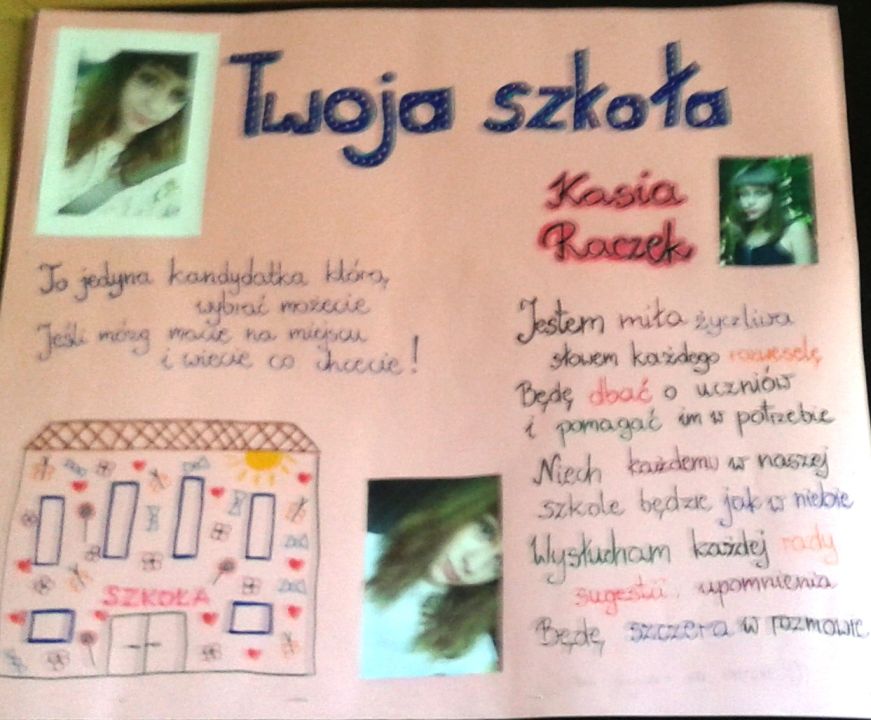 Twoja szkoła
Kasia
Raczek
To jedyna kandydatka którą
wybrać możecie
Jeśli mózg macie na miejscu
i wiecie co chcecie!
Jestem miła życzliwa
słowem każdego rozweselę
Będę dbać o uczniów
i pomagać im w potrzebie
Niech każdemu w naszej
szkole będzie jak w niebie
Wysłucham każdej rady
sugestii, upomnienia
Będę szczera w rozmowie
SZKOŁA